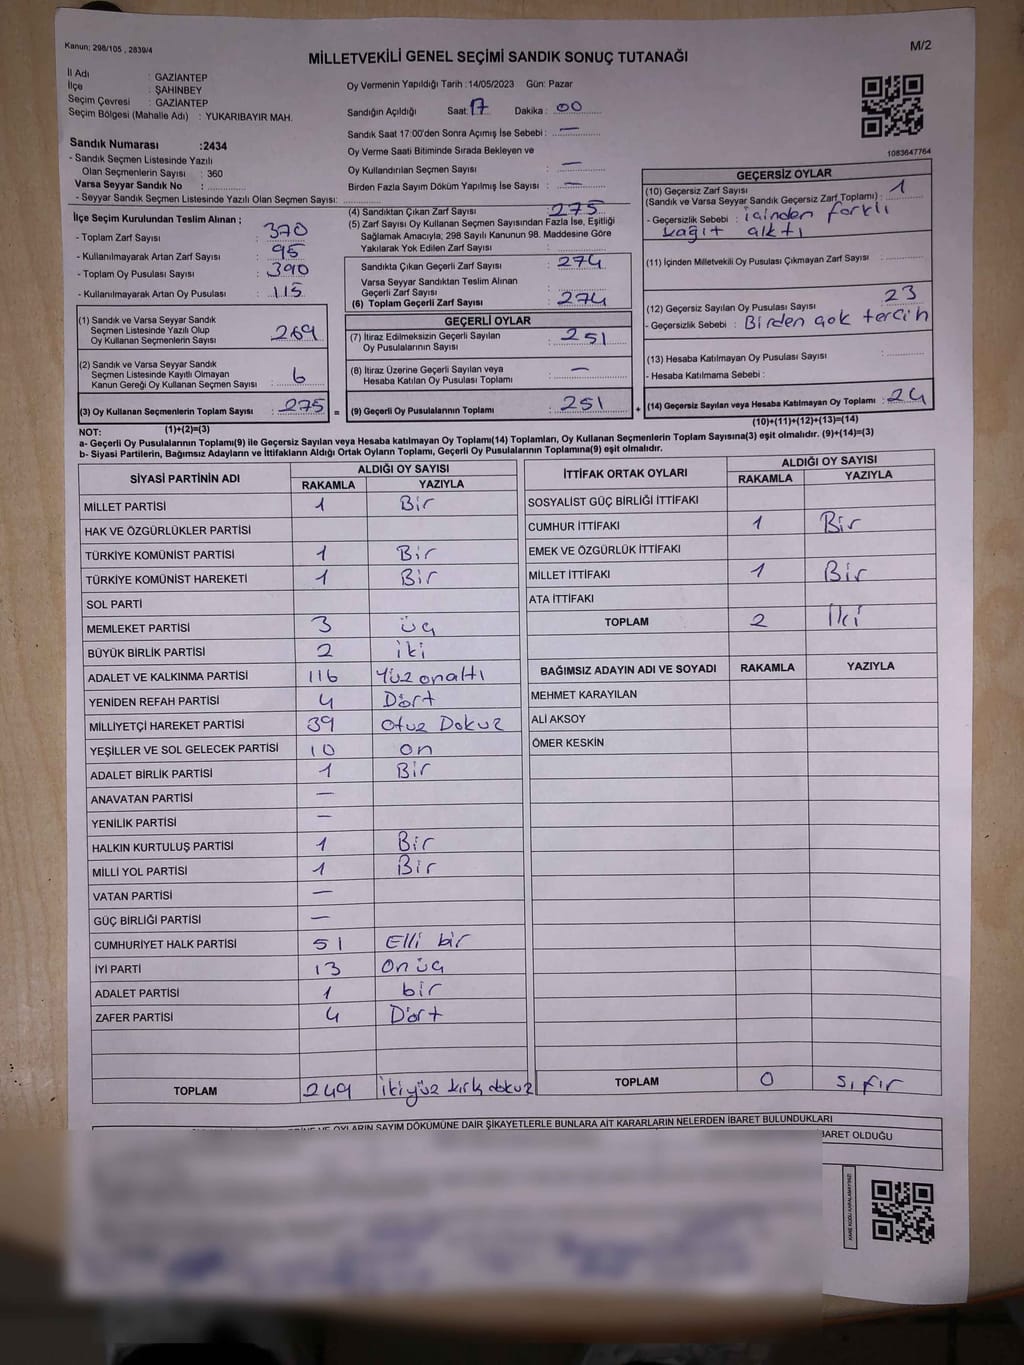 Kanun; 298/105 , 2839/4
M/2
MİLLETVEKİLİ GENEL SEÇİMİ SANDIK SONUÇ TUTANAĞI
İl Adı : GAZİANTEP
İlçe : ŞAHİNBEY
Seçim Çevresi : GAZİANTEP
Seçim Bölgesi (Mahalle Adı) : YUKARIBAYIR MAH.
Sandık Numarası :2434
- Sandık Seçmen Listesinde Yazılı
Olan Seçmenlerin Sayısı : 360
Varsa Seyyar Sandık No :
- Seyyar Sandık Seçmen Listesinde Yazılı Olan Seçmen Sayısı:
Oy Vermenin Yapıldığı Tarih : 14/05/2023 Gün: Pazar
Sandığın Açıldığı Saat: 17 Dakika : 00
Sandık Saat 17:00'den Sonra Açımış İse Sebebi : —
Oy Verme Saati Bitiminde Sırada Bekleyen ve
Oy Kullandırılan Seçmen Sayısı : —
Birden Fazla Sayım Döküm Yapılmış İse Sayısı : —
1083647764
İlçe Seçim Kurulundan Teslim Alınan ;
- Toplam Zarf Sayısı : 370
- Kullanılmayarak Artan Zarf Sayısı : 95
- Toplam Oy Pusulası Sayısı : 390
- Kullanılmayarak Artan Oy Pusulası : 115
(1) Sandık ve Varsa Seyyar Sandık
Seçmen Listesinde Yazılı Olup
Oy Kullanan Seçmenlerin Sayısı : 269
(2) Sandık ve Varsa Seyyar Sandık
Seçmen Listesinde Kayıtlı Olmayan
Kanun Gereği Oy Kullanan Seçmen Sayısı : 6
(3) Oy Kullanan Seçmenlerin Toplam Sayısı : 275 =
(1)+(2)=(3)
(4) Sandıktan Çıkan Zarf Sayısı : 275
(5) Zarf Sayısı Oy Kullanan Seçmen Sayısından Fazla İse, Eşitliği
Sağlamak Amacıyla, 298 Sayılı Kanunun 98. Maddesine Göre
Yakılarak Yok Edilen Zarf Sayısı :
Sandıkta Çıkan Geçerli Zarf Sayısı : 274
Varsa Seyyar Sandıktan Teslim Alınan
Geçerli Zarf Sayısı :
(6) Toplam Geçerli Zarf Sayısı : 274
GEÇERLİ OYLAR
(7) İtiraz Edilmeksizin Geçerli Sayılan
Oy Pusulalarının Sayısı : 251
(8) İtiraz Üzerine Geçerli Sayılan veya
Hesaba Katılan Oy Pusulası Toplamı : —
(9) Geçerli Oy Pusulalarının Toplamı : 251 +
GEÇERSİZ OYLAR
(10) Geçersiz Zarf Sayısı
(Sandık ve Varsa Seyyar Sandık Geçersiz Zarf Toplamı) : 1
- Geçersizlik Sebebi : içinden farklı
kağıt çıktı
(11) İçinden Milletvekili Oy Pusulası Çıkmayan Zarf Sayısı :
(12) Geçersiz Sayılan Oy Pusulası Sayısı : 23
- Geçersizlik Sebebi : Birden çok tercih
(13) Hesaba Katılmayan Oy Pusulası Sayısı :
- Hesaba Katılmama Sebebi :
(14) Geçersiz Sayılan veya Hesaba Katılmayan Oy Toplamı : 24
(10)+(11)+(12)+(13)=(14)
NOT:
a- Geçerli Oy Pusulalarının Toplamı(9) ile Geçersiz Sayılan veya Hesaba katılmayan Oy Toplamı(14) Toplamları, Oy Kullanan Seçmenlerin Toplam Sayısına(3) eşit olmalıdır. (9)+(14)=(3)
b- Siyasi Partilerin, Bağımsız Adayların ve İttifakların Aldığı Ortak Oyların Toplamı, Geçerli Oy Pusulalarının Toplamına(9) eşit olmalıdır.
SİYASİ PARTİNİN ADI ALDIĞI OY SAYISI
RAKAMLA YAZIYLA
MİLLET PARTİSİ 1 Bir
HAK VE ÖZGÜRLÜKLER PARTİSİ
TÜRKİYE KOMÜNİST PARTİSİ 1 Bir
TÜRKİYE KOMÜNİST HAREKETİ 1 Bir
SOL PARTİ
MEMLEKET PARTİSİ 3 üç
BÜYÜK BİRLİK PARTİSİ 2 iki
ADALET VE KALKINMA PARTİSİ 116 Yüz onaltı
YENİDEN REFAH PARTİSİ 4 Dört
MİLLİYETÇİ HAREKET PARTİSİ 39 Otuz Dokuz
YEŞİLLER VE SOL GELECEK PARTİSİ 10 on
ADALET BİRLİK PARTİSİ 1 Bir
ANAVATAN PARTİSİ —
YENİLİK PARTİSİ —
HALKIN KURTULUŞ PARTİSİ 1 Bir
MİLLİ YOL PARTİSİ 1 Bir
VATAN PARTİSİ —
GÜÇ BİRLİĞİ PARTİSİ —
CUMHURİYET HALK PARTİSİ 51 Elli bir
İYİ PARTİ 13 On üç
ADALET PARTİSİ 1 bir
ZAFER PARTİSİ 4 Dört
TOPLAM 249 ikiyüz kırk dokuz
İTTİFAK ORTAK OYLARI ALDIĞI OY SAYISI
RAKAMLA YAZIYLA
SOSYALİST GÜÇ BİRLİĞİ İTTİFAKI
CUMHUR İTTİFAKI 1 Bir
EMEK VE ÖZGÜRLÜK İTTİFAKI
MİLLET İTTİFAKI 1 Bir
ATA İTTİFAKI
TOPLAM 2 İki
BAĞIMSIZ ADAYIN ADI VE SOYADI RAKAMLA YAZIYLA
MEHMET KARAYILAN
ALİ AKSOY
ÖMER KESKİN
TOPLAM 0 sıfır
OYLARIN SAYIM DÖKÜMÜNE DAİR ŞİKAYETLERLE BUNLARA AİT KARARLARIN NELERDEN İBARET BULUNDUKLARI
BARET OLDUĞU
KARE KODU KARALAMAYINIZ!